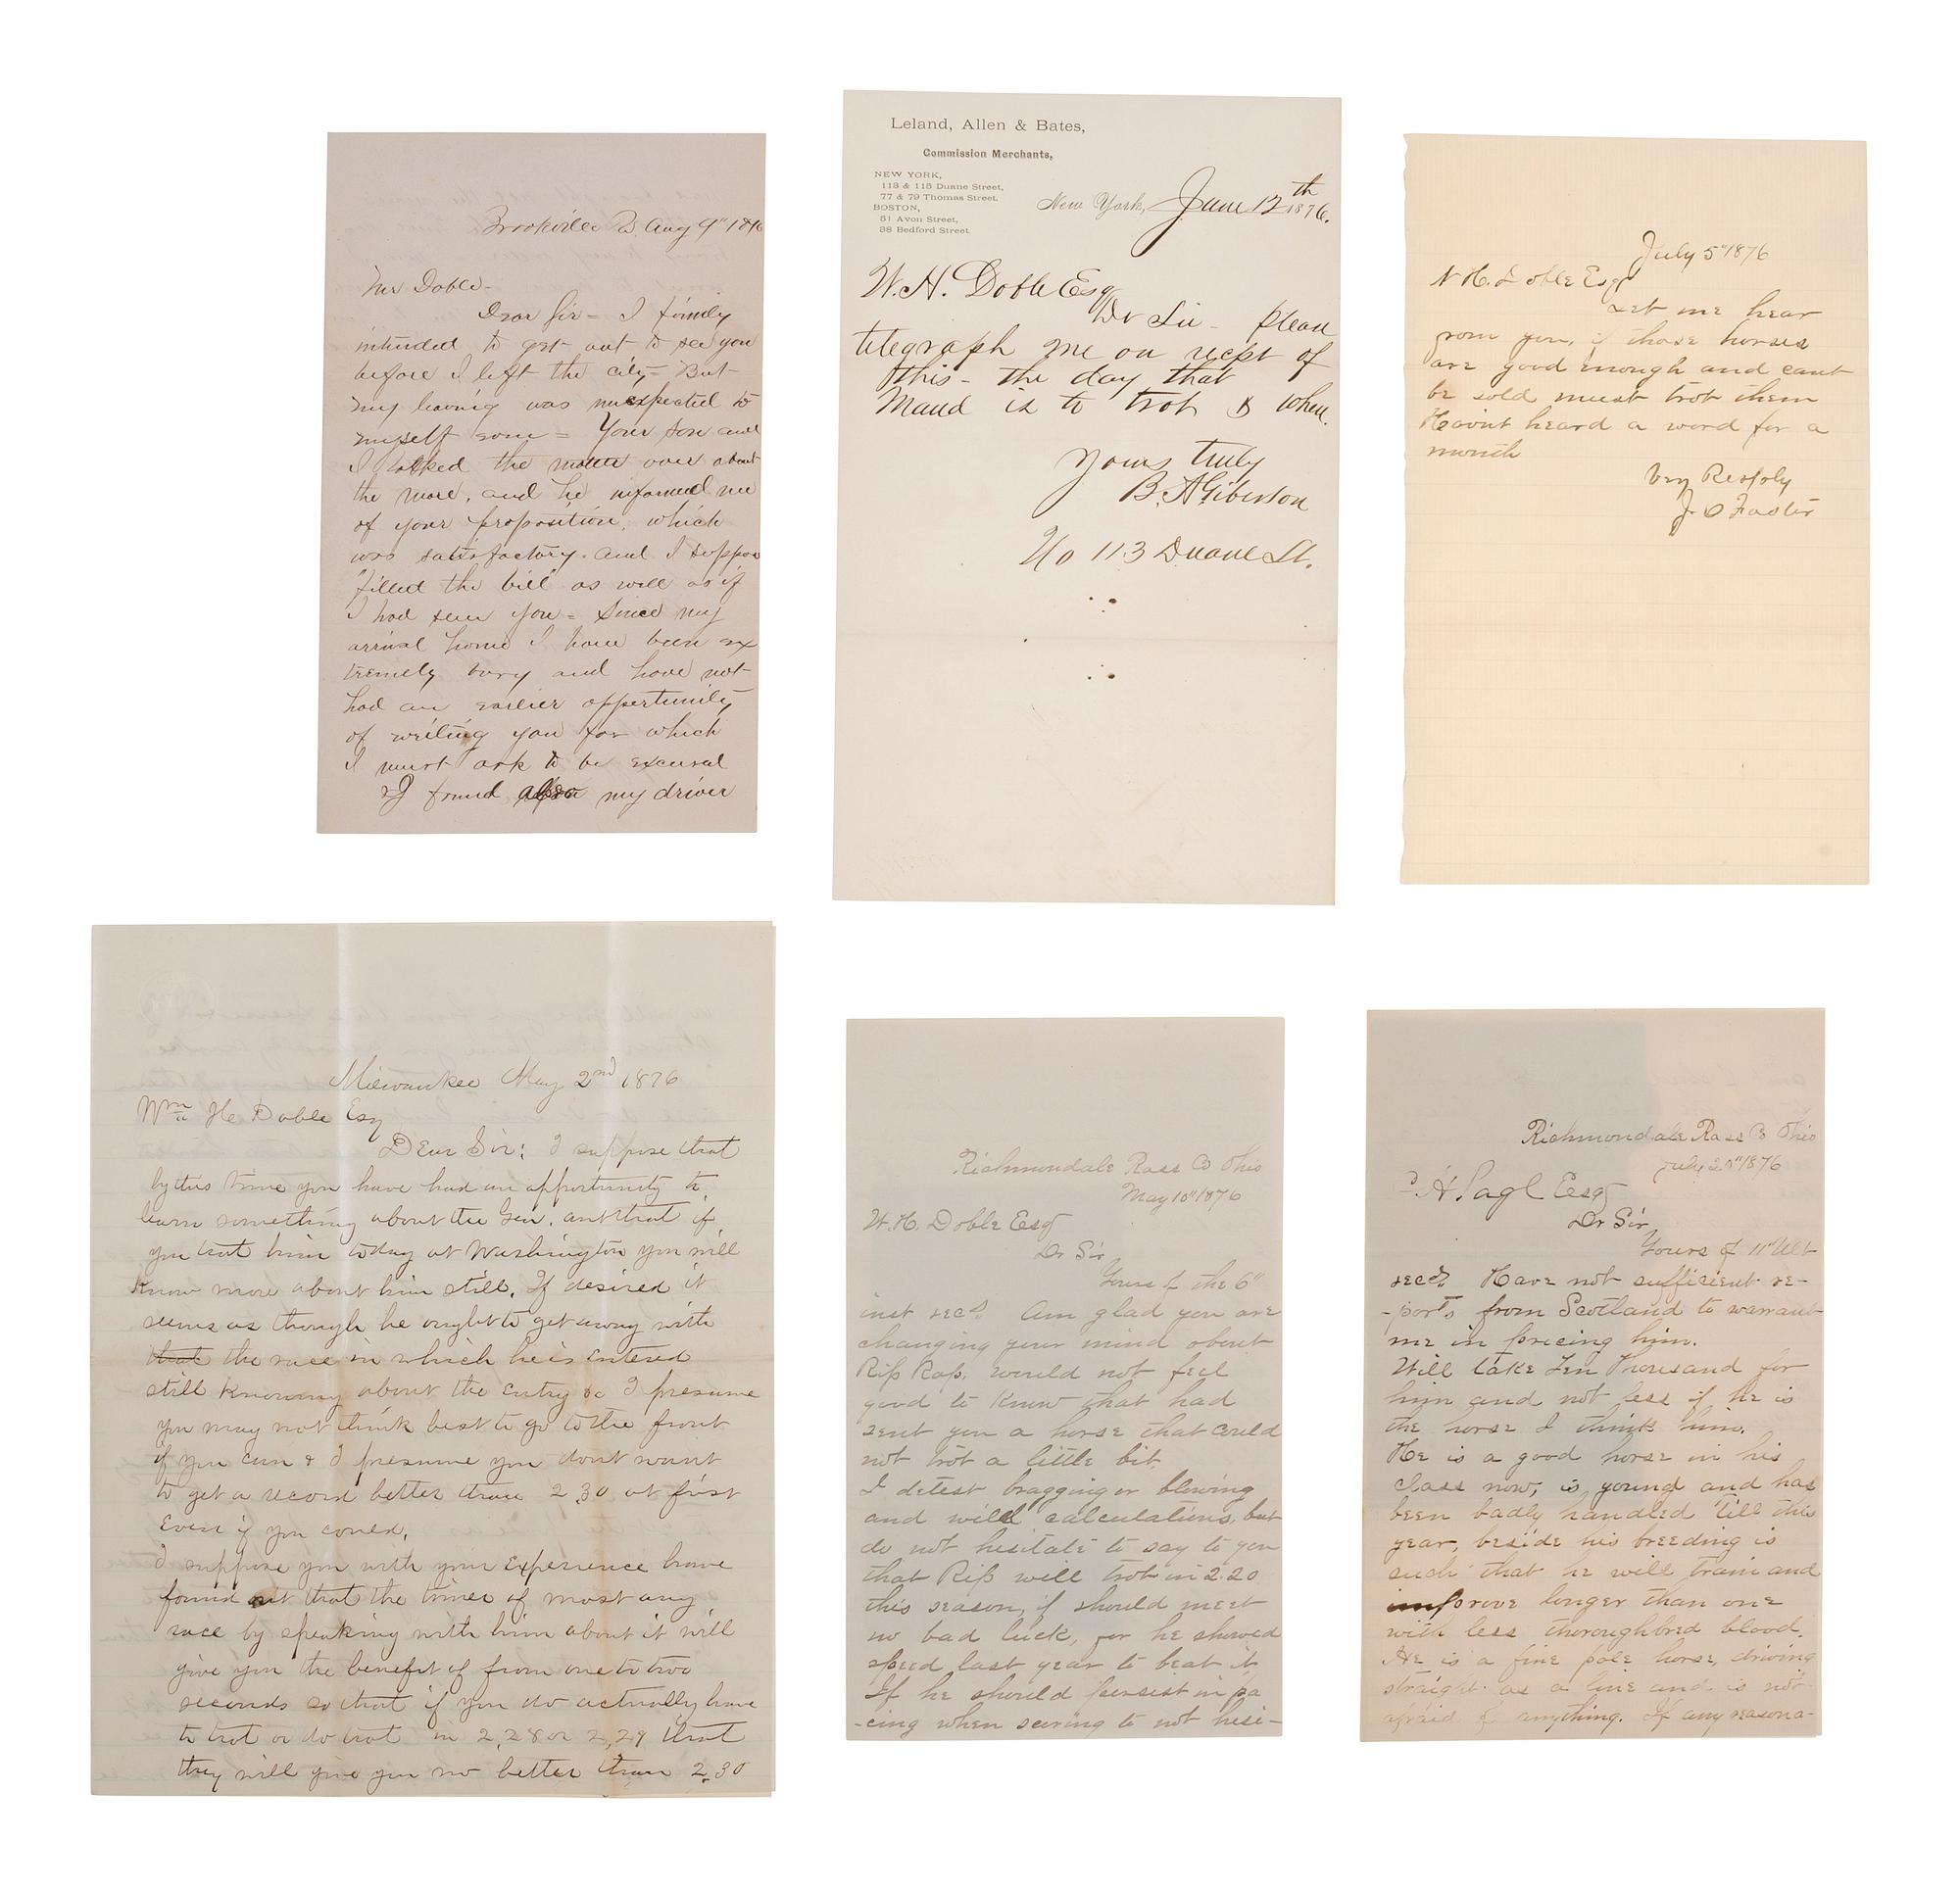 Brookville Pa Aug 9" 1876
Mr Doble-
Dear Sir - I firmly
intended to get out to see you
before I left the city - But
my leaving was unexpected to
myself even = Your son and
I talked the matter over about
the mare, and he informed me
of your proposition, which
was satisfactory. and I suppose
"filled the bill" as well as if
I had seen you = Since my
arrival home I have been ex
tremely busy and have not
had an earlier opportunity
of writing you for which
I must ask to be excused
I found also my driver
Leland, Allen & Bates,
Commission Merchants,
NEW YORK,
113 & 115 Duane Street,
77 & 79 Thomas Street.
BOSTON,
51 Avon Street,
38 Bedford Street.
New York, June 12th 1876.
W. H. Doble Esq
Dr Sir - please
telegraph me on recept of
this - the day that
Maud is to trot & when.
Yours truly
B. A Giberson
No 113 Duane St.
July 5" 1876
W H. Doble Esq
Let me hear
from you, if those horses
are good enough and cant
be sold must trot them
Havint heard a word for a
month
Very Respfly
J. O Foster
Milwaukee May 2nd 1876
Wm H Doble Esq
Dear Sir; I suppose that
by this time you have had an opportunity to
learn something about the Gen. and that if
you trot him today at Washington you will
know more about him still. If desired it
seems as though he ought to get away with
that the race in which he is entered
still knowing about the entry &c I presume
you may not think best to go to the front
if you can & I presume you dont want
to get a record better than 2.30 at first
Even if you could.
I suppose you with your experience have
found out that the timer of most any
race by speaking with him about it will
give you the benefit of from one to two
seconds so that if you do actually have
to trot or do trot in 2,28 or 2,29 that
they will give you no better than 2.30
Richmondale Ross Co Ohio
May 10" 1876
W. H. Doble Esq
Dr Sir,
Yours of the 6"
inst recd. Am glad you are
changing your mind about
Rip Rap, would not feel
good to know that had
sent you a horse that could
not trot a little bit.
I detest bragging or blowing
and wild calculations, but
do not hesitate to say to you
that Rip will trot in 2.20
this season, if should meet
no bad luck, for he showed
speed last year to beat it
If he should persist in pa
-cing when scoring to not hesi-
Richmondale Ross Co Ohio
July 1876
H. Pagl Esq
Dr Sir,
Yours of 11" Ult
recd. Have not sufficient re-
-ports from Scotland to warrant
me in pricing him.
Will take Ten Thousand for
him and not less if he is
the horse I think him.
He is a good horse in his
class now, is young and has
been badly handled 'till this
year, beside his breeding is
such that he will train and
improve longer than one
with less thoroughbred blood.
He is a fine pole horse, driving
straight as a line and is not
afraid of anything. If any reason-